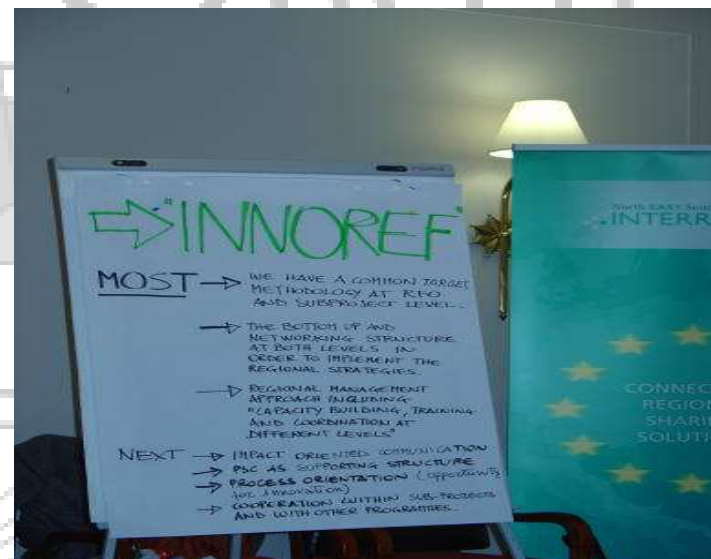 "INNOREF"
MOST → WE HAVE A COMMON TARGET
METHODOLOGY AT RFO
AND SUBPROJECT LEVEL.
→ THE BOTTOM UP AND
NETWORKING STRUCTURE
AT BOTH LEVELS IN
ORDER TO IMPLEMENT THE
REGIONAL STRATEGIES.
→ REGIONAL MANAGEMENT
APPROACH INCLUDING
"CAPACITY BUILDING, TRAINING
AND COORDINATION AT
DIFFERENT LEVELS"
NEXT → IMPACT ORIENTED COMMUNICATION
→ PSC AS SUPPORTING STRUCTURE
→ PROCESS ORIENTATION (opportunity
for innovation)
→ COOPERATION WITHIN SUB-PROJECTS
AND WITH OTHER PROGRAMMES.
North EAST Sou
INTERR
CONNEC
REGION
SHARI
SOLUTI